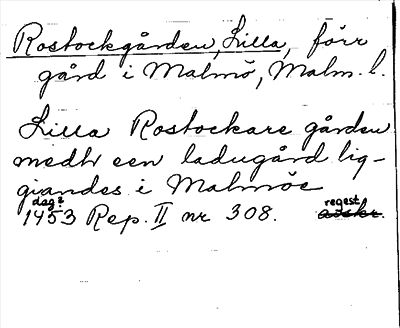 Rostockgården, Lilla, förr
gård i Malmö, Malm. l.
Lilla Rostockare gården
medh een ladugård lig-
giandes i Malmöe
dag?
1453 Rep. II nr 308. regest
avskr.